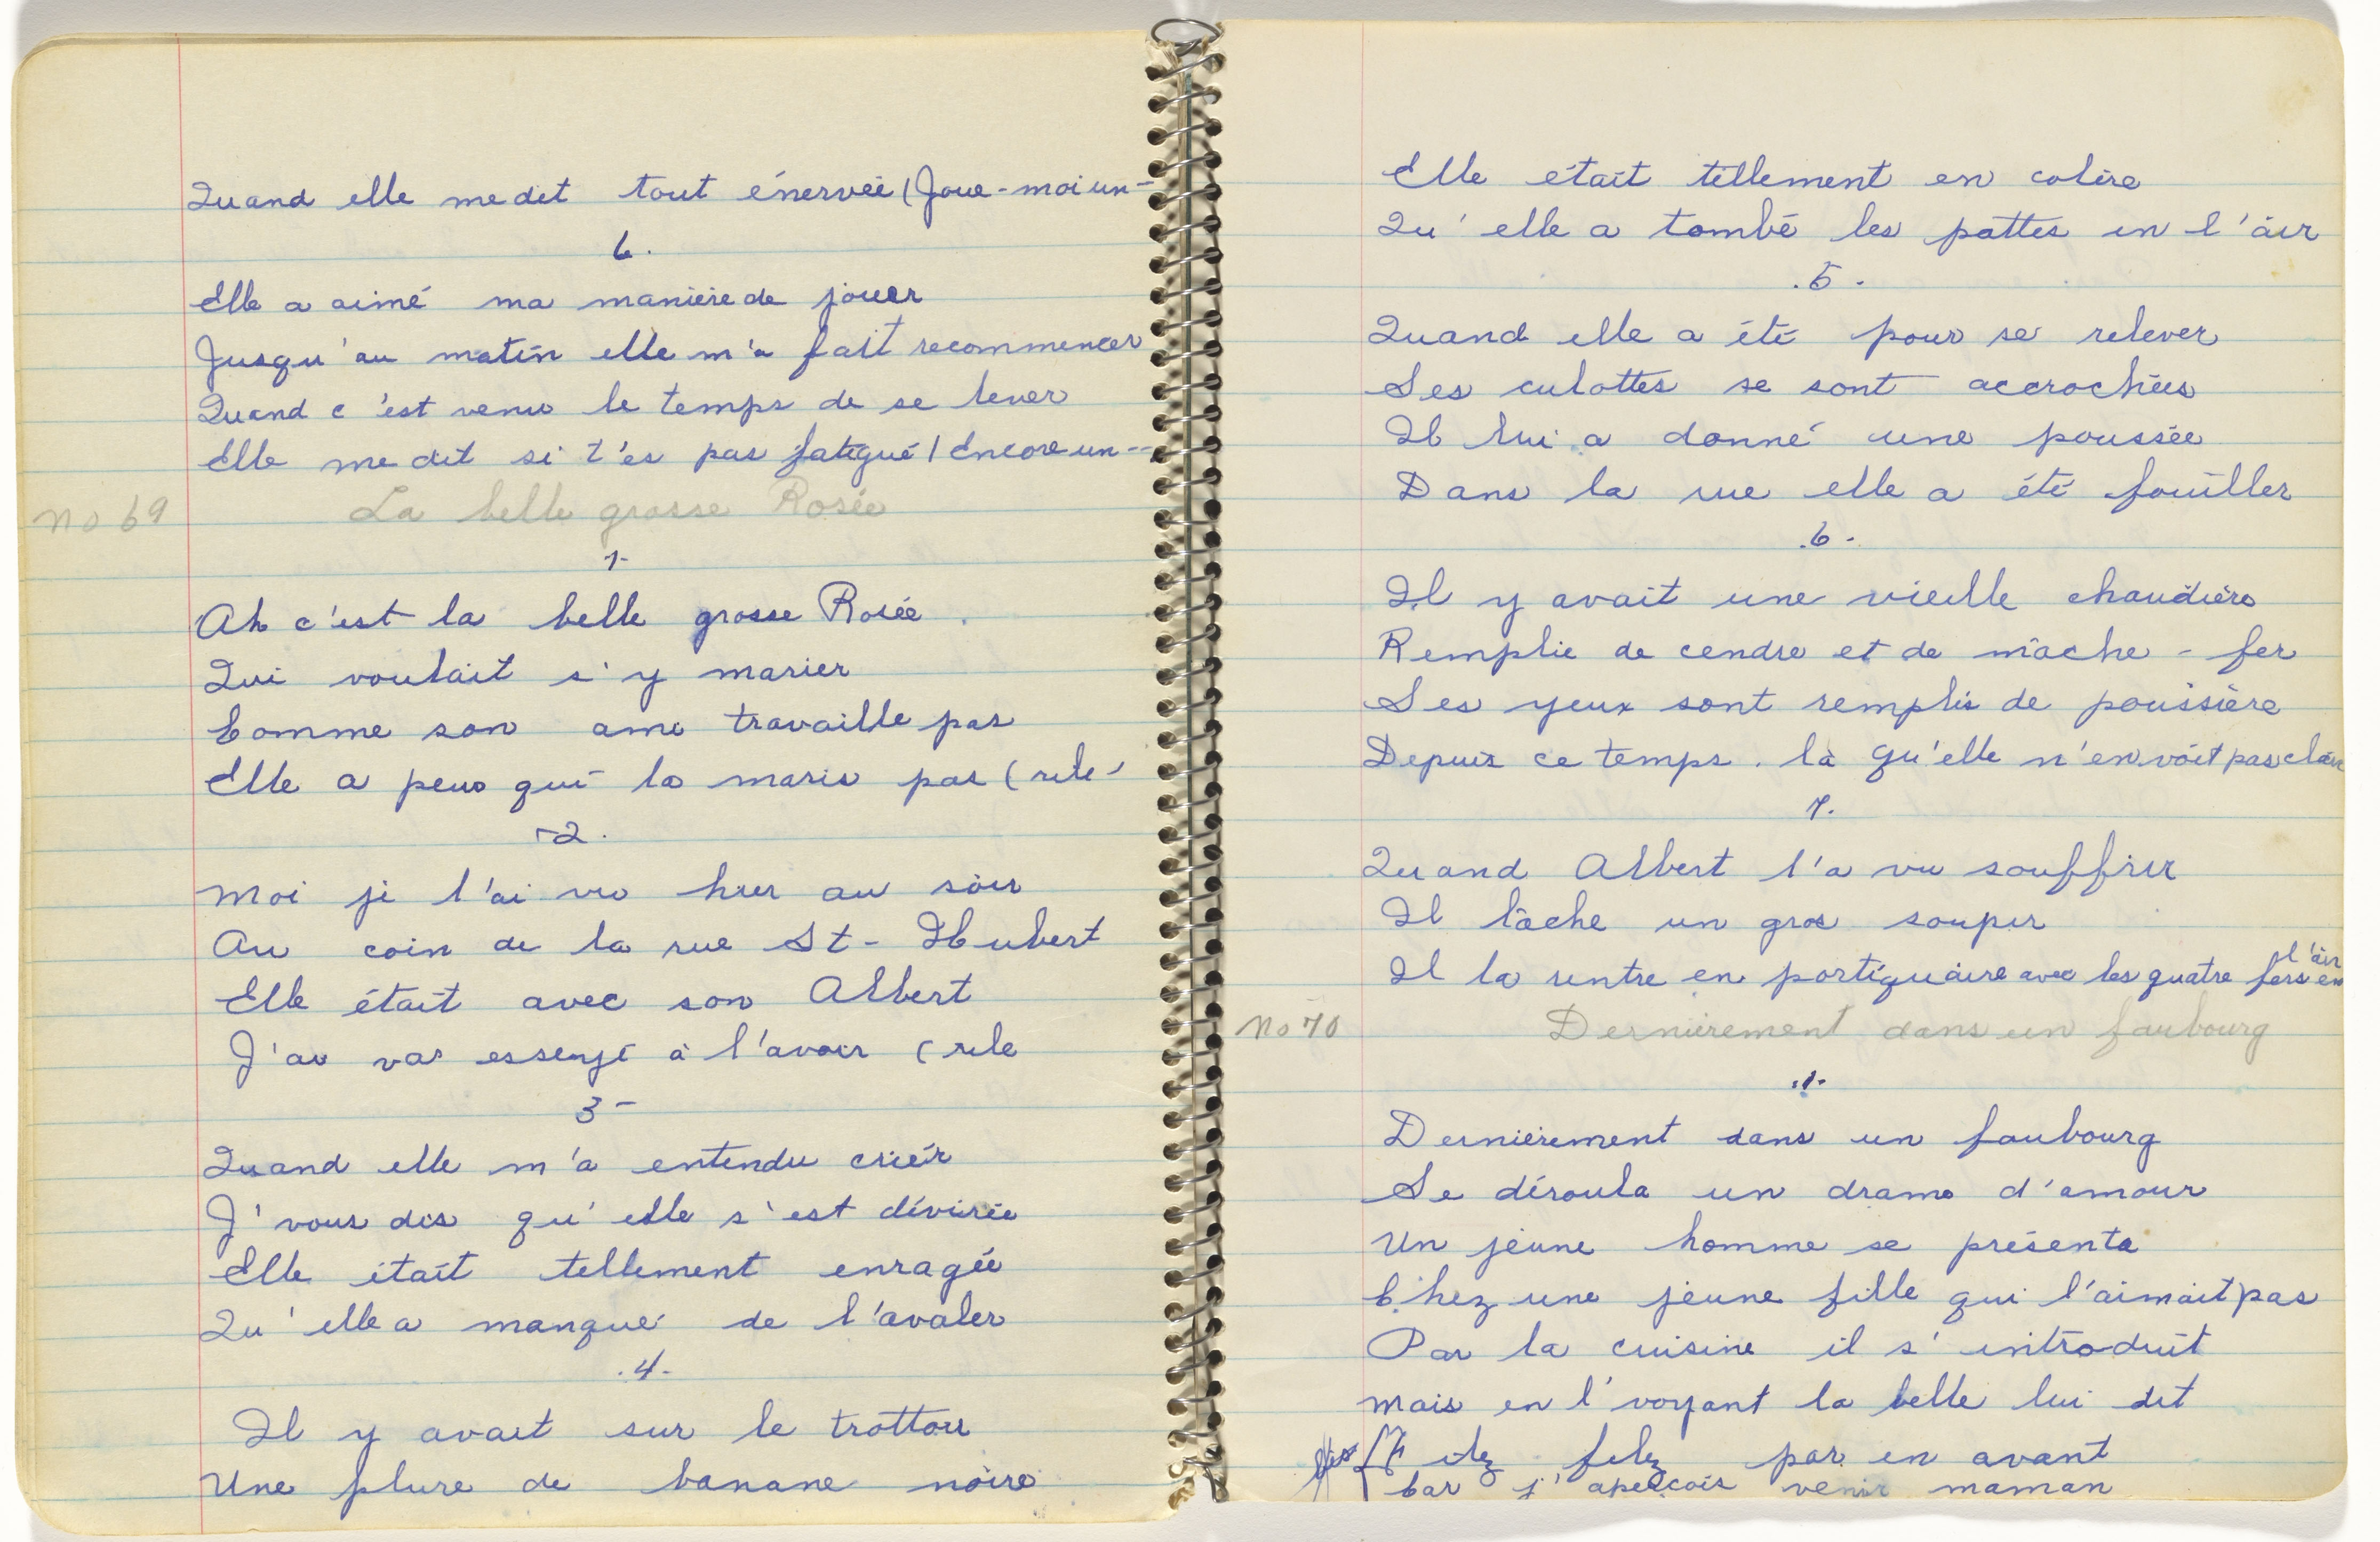 Quand elle me dit tout énervée (Joue-moi un-
6.
Elle a aimé ma manière de jouer
Jusqu'au matin elle m'a fait recommencer
Quand c'est venu le temps de se lever
Elle me dit si t'es pas fatigué / Encore un--
no 69 La belle grosse Rosée
1-
Ah c'est la belle grosse Rosée
Qui voulait s'y marier
Comme son ami travaille pas
Elle a peur qui la marie pas (
-2.
Moi je l'ai vu hier au soir
Au coin de la rue St-Hubert
Elle était avec son Albert
J'au va essayé à l'avoir (
3-
Quand elle m'a entendu crier
J'vous dis qu'elle s'est dévirée
Elle était tellement enragée
Qu'elle a manqué de l'avaler
.4.
Il y avait sur le trottoir
Une plure de banane noire
Elle était tellement en colère
Qu'elle a tombé les pattes en l'air
.5-
Quand elle a été pour se relever
Ses culottes se sont accrochées
Il lui a donné une poussée
Dans la rue elle a été fouiller
.6-
Il y avait une vieille chaudière
Remplie de cendre et de mâche-fer
Ses yeux sont remplis de poussière
Depuis ce temps. là qu'elle n'en voit pas clair
7.
Quand Albert l'a vu souffrir
Il lâche un gros soupir
Il la rentre en portiquaire avec les quatre fers en l'air
no 70 Dernièrement dans un faubourg
.1.
Dernièrement dans un faubourg
Se déroula un drame d'amour
Un jeune homme se présenta
Chez une jeune fille qui l'aimait pas
Par la cuisine il s'introduit
Mais en l'voyant la belle lui dit
filez par en avant
Car j'aperçois venir maman